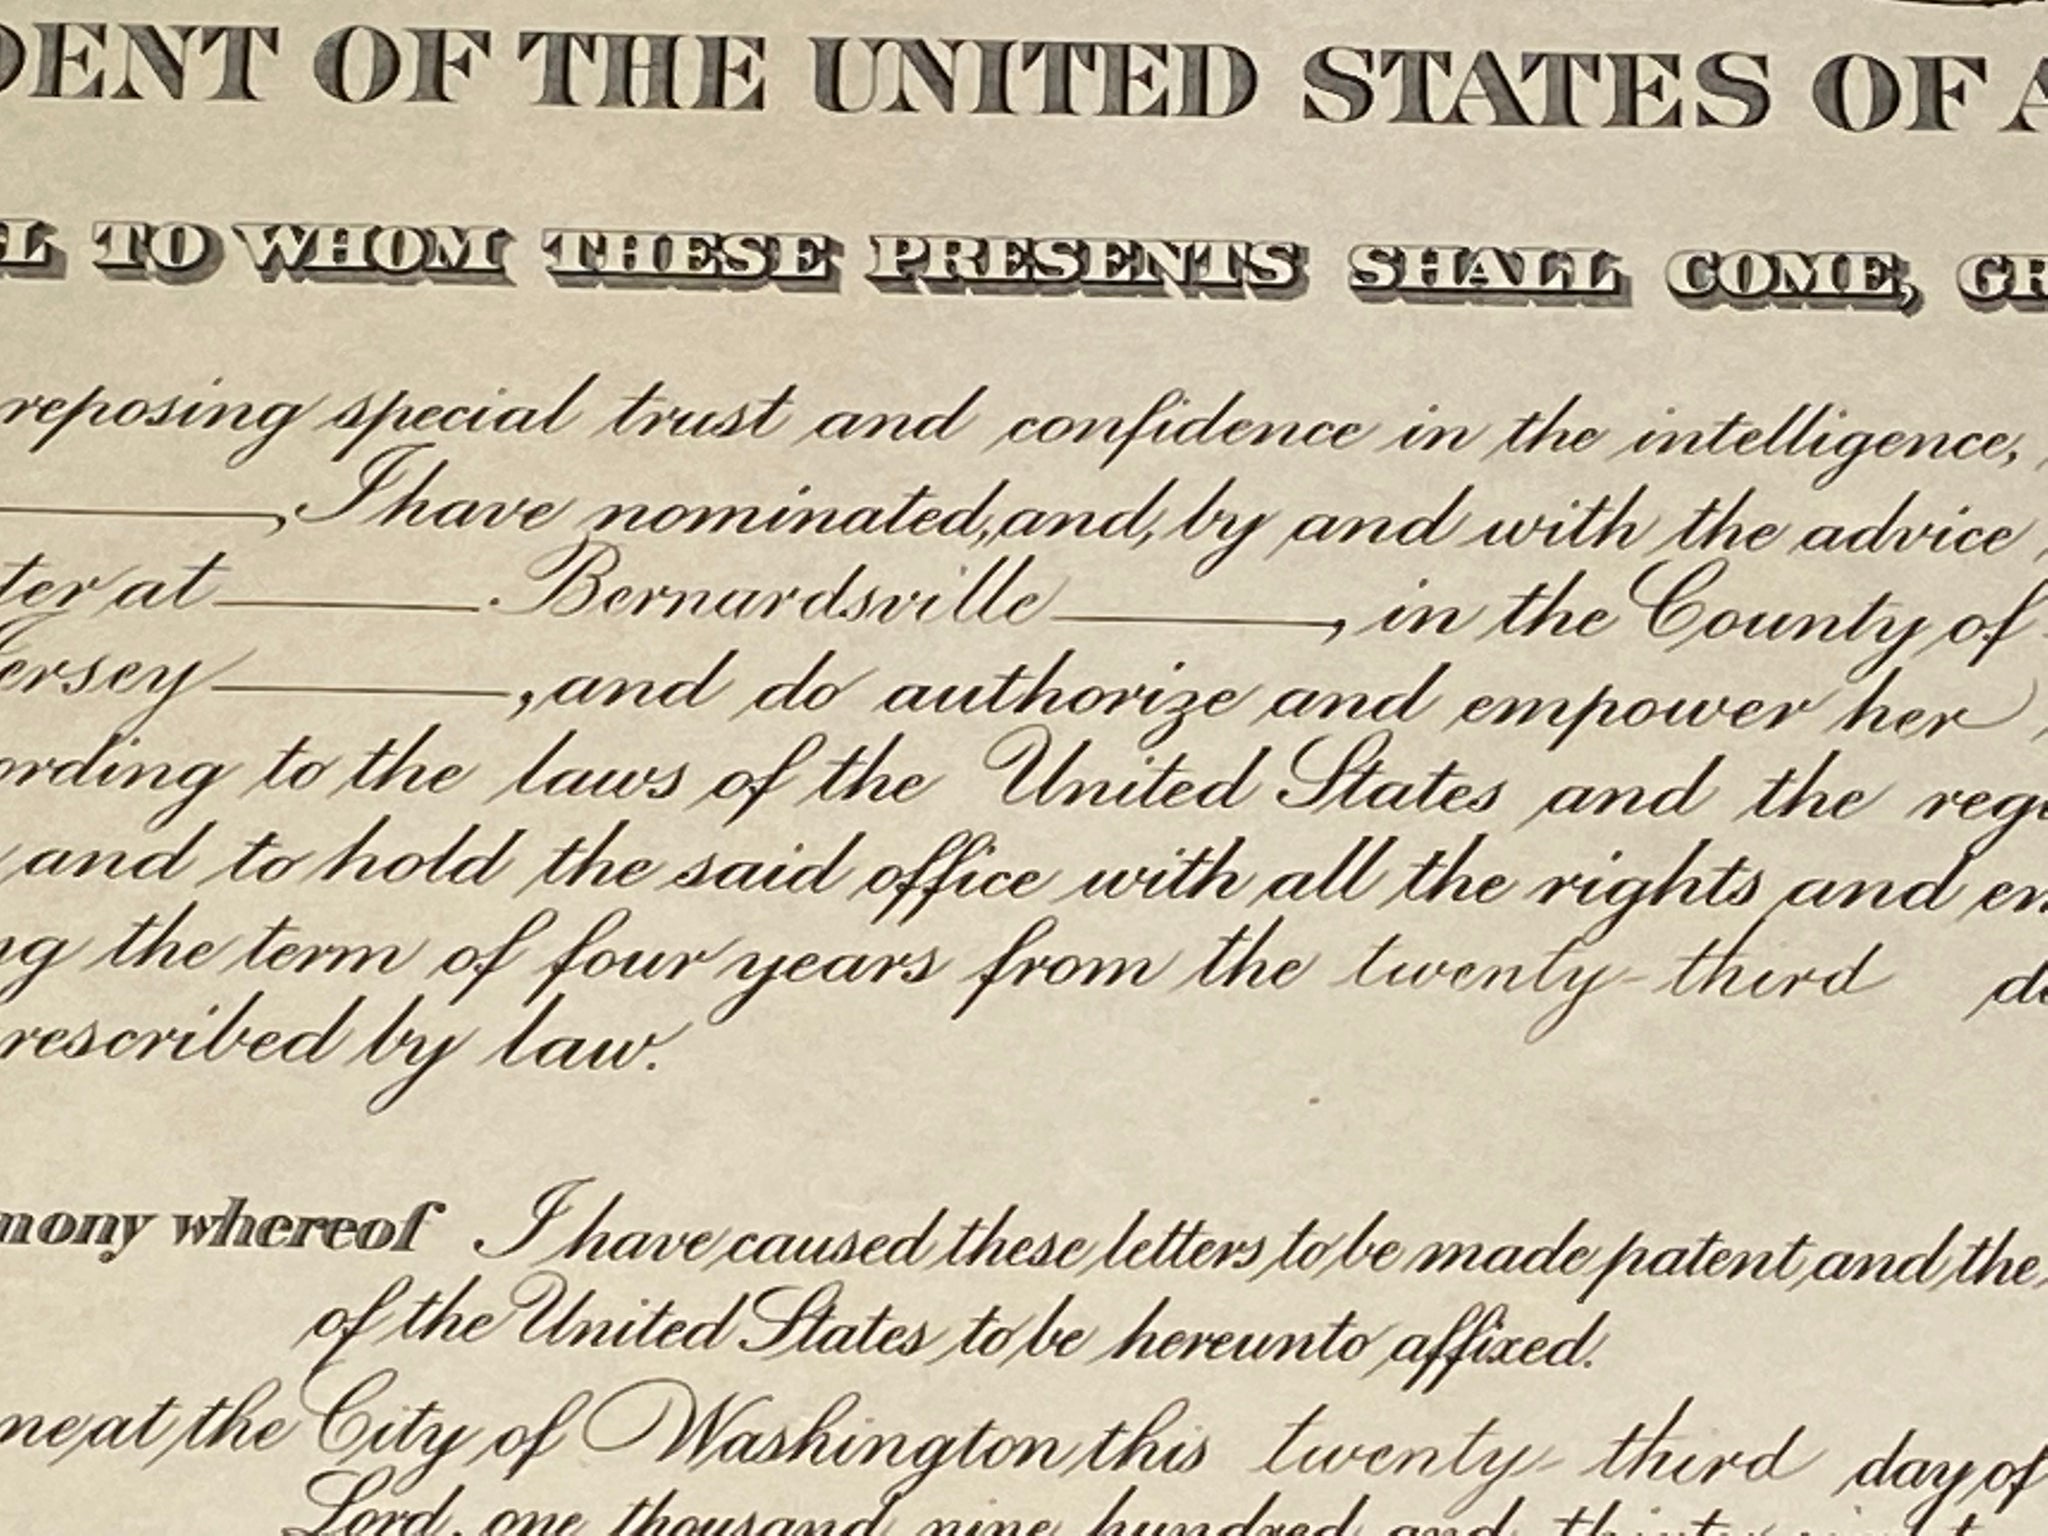 DENT OF THE UNITED STATES OF A
L TO WHOM THESE PRESENTS SHALL COME, GR
reposing special trust and confidence in the intelligence,
, I have nominated, and, by and with the advice
ter at Bernardsville, in the County of
Jersey, and do authorize and empower her
ording to the laws of the United States and the regu
and to hold the said office with all the rights and em
ng the term of four years from the twenty-third da
rescribed by law.
mony whereof I have caused these letters to be made patent, and the
of the United States to be hereunto affixed.
me at the City of Washington this twenty-third day of
Lord, one thousand nine hundred and thirty